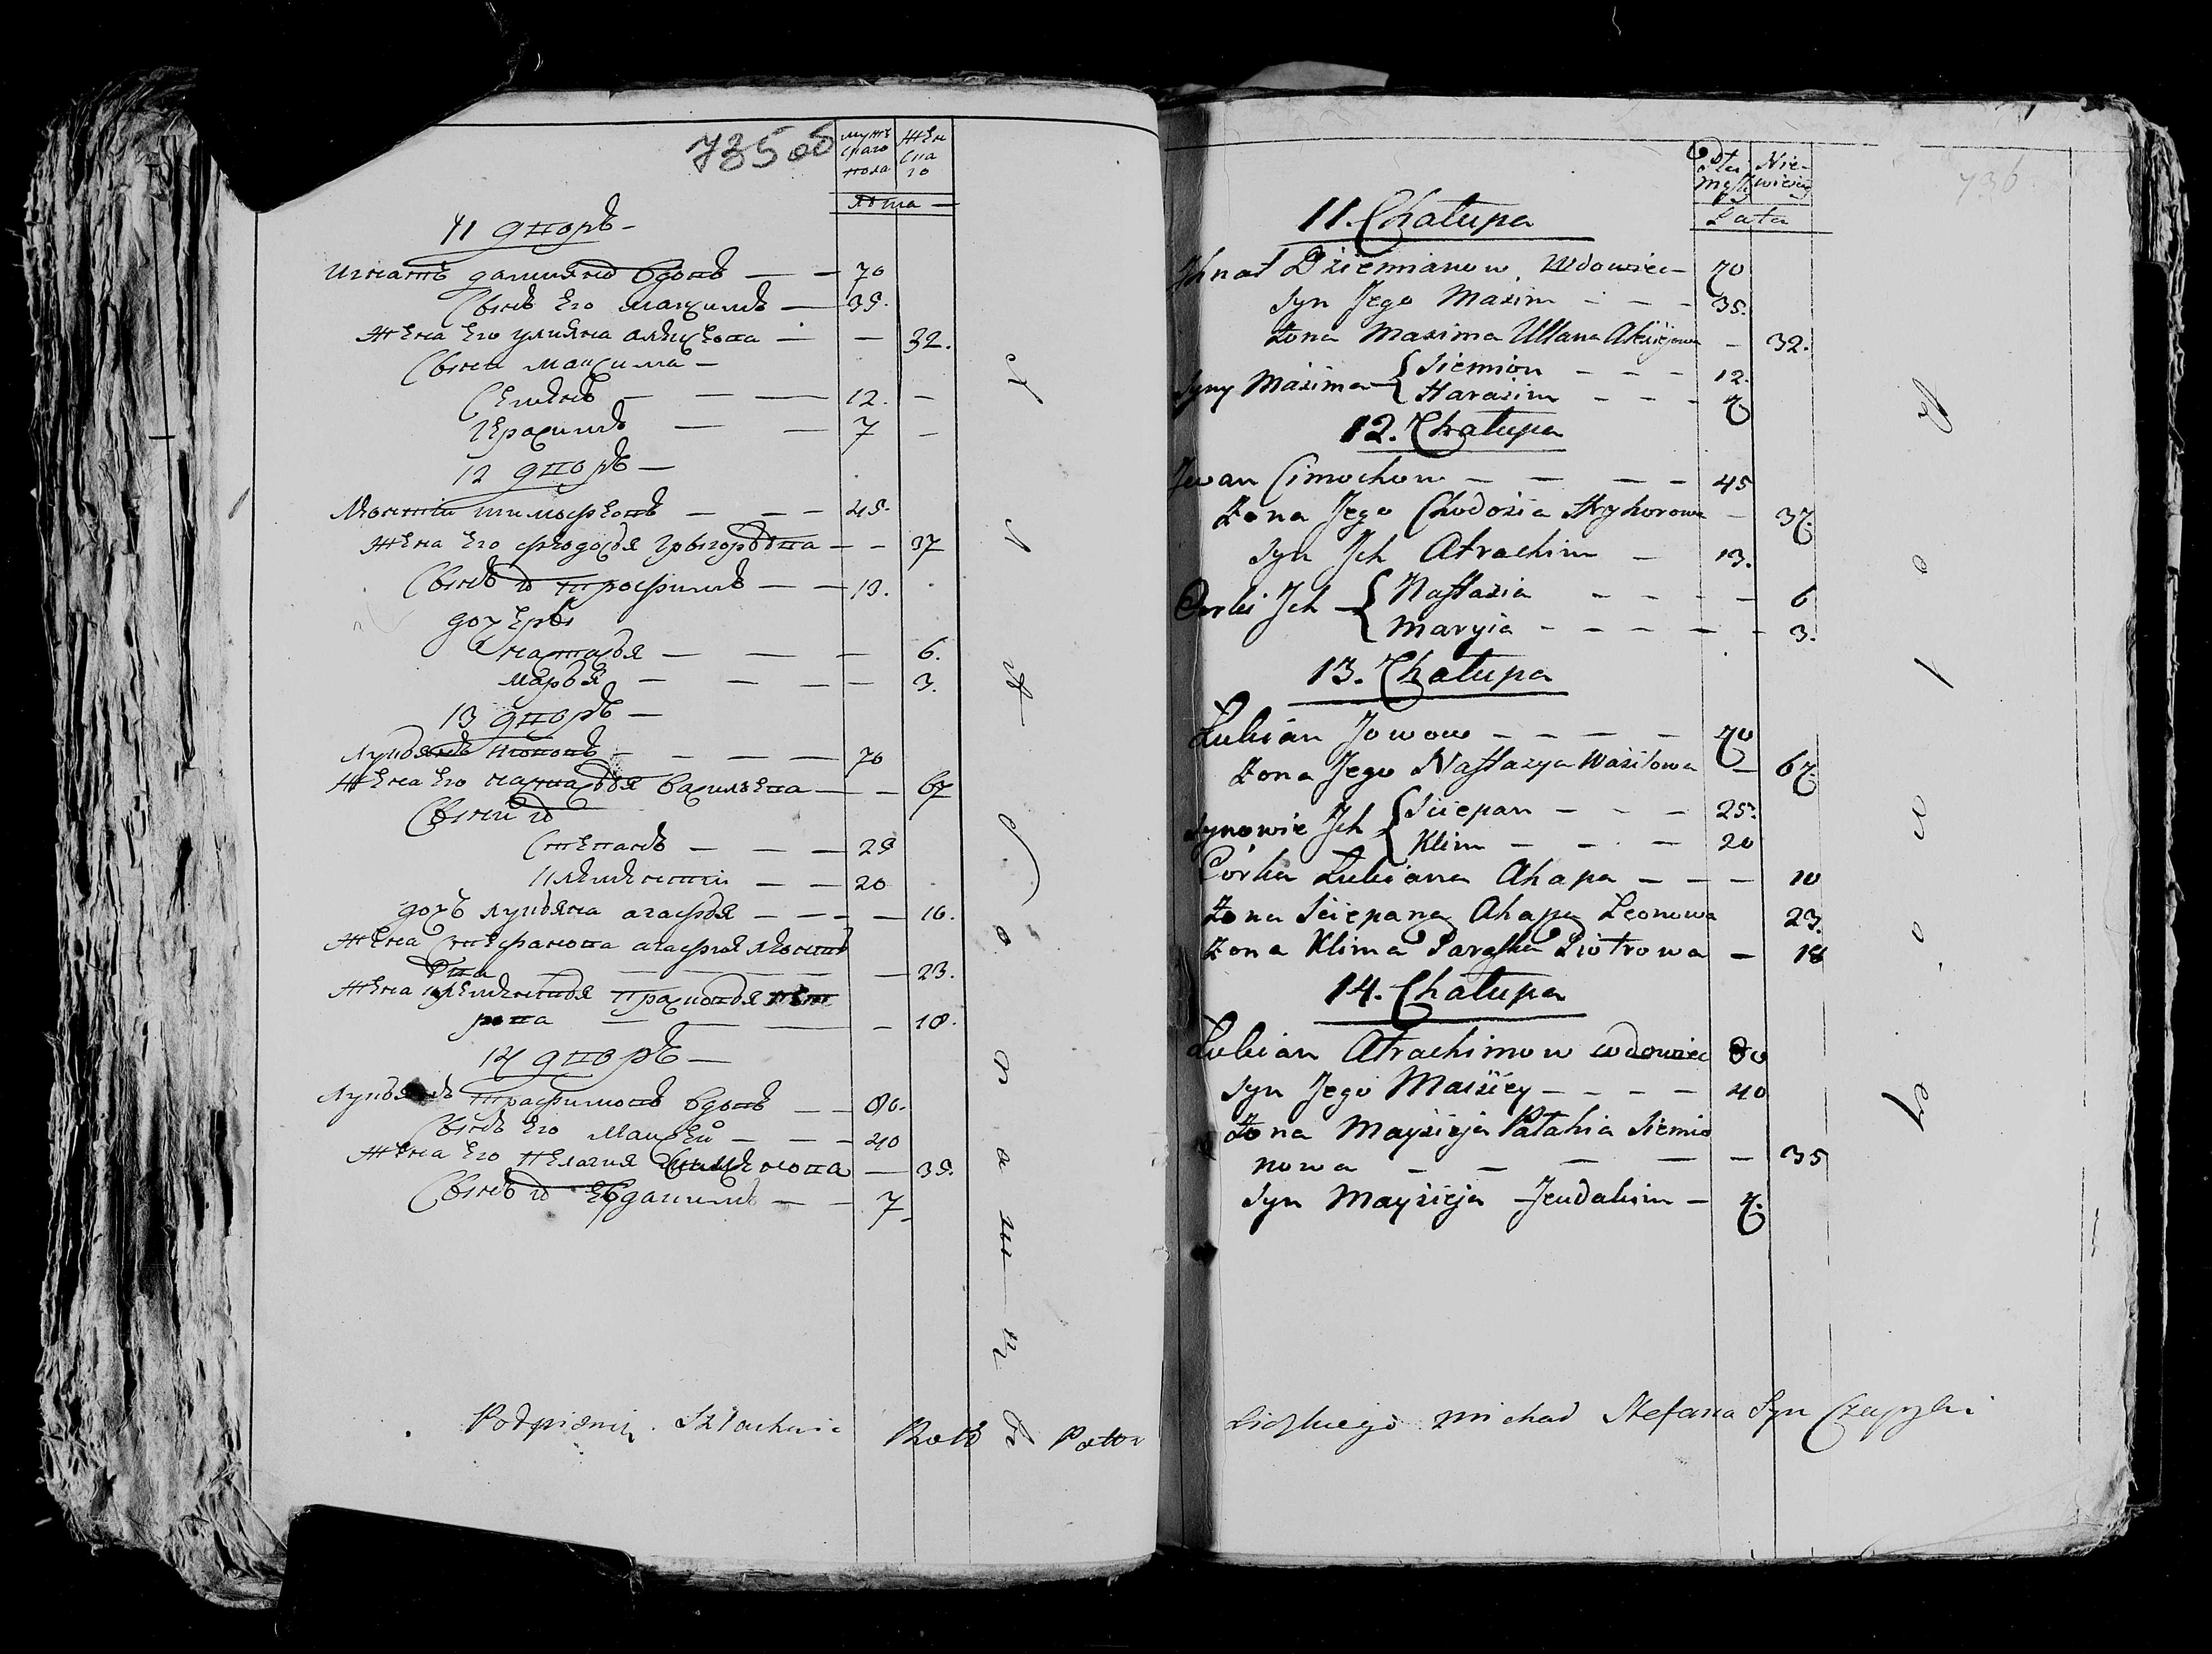 735 об
мужескаго пола
женскаго
лета
11 дворъ
Игнатъ дамиянов вдовъ 70
Сынъ Его Максимъ 35.
Жена Его улияна алексеева 32.
Сыны Максима
Семенъ 12.
Герасимъ 7
12 дворъ
тимофеевъ 45.
Жена Его феодосья григорьева 37
Сынъ их трофимъ 13.
дочеры
настасья 6.
Марья 3.
13 дворъ
Лукьянъ 70
Жена Его настасья василева 67
Сыни их
Степанъ 25
Климентий 20
дочъ лукьяна агафья 10.
Жена Стефанова агафья
23.
Жена Клементья прасковья пет
рова 18.
14 дворъ
Лукьянъ трофимовъ вдовъ 80.
Сынъ Его Мансей 40
Жена Его пелагия Семенова 35.
Сынъ их Евдакимъ 7
Podpisnik Szlachcic Rott Pottu
736
Płci Męskiey
Niewiesciey
Lata
11. Chałupa
Jhnat Dziemianow Wdowiec 70
Syn Jego Maxim 35.
Żona Maxima Ullana Alexiejowa 32.
Syny Maxima Siemion 12.
Harasim 7
12. Chałupa
Jwan Cimochow 45
Żona Jego Chodosia Hryhorowa 37.
Syn Jch Atrachim 13.
Corki Jch Nastazia 6
Maryia 3.
13. Chałupa
Łukian Jowow 70
Żona Jego Nastazya Wasilowa 67.
Synowie Jch Sciepan 25.
Klim 20
Córka Łukiana Ahapa 10
Żona Sciepana Ahapa Leonowa 23.
Żona Klima Paraska Piotrowa 18
14. Chałupa
Łukian Atrachimow wdowiec 80
Syn Jego Maisiey 40
Żona Maysieja Pałahia Siemio
nowa 35
Syn Maysieja Jeudakim 7.
Lidzkiego Michał Stefana Syn Czapski